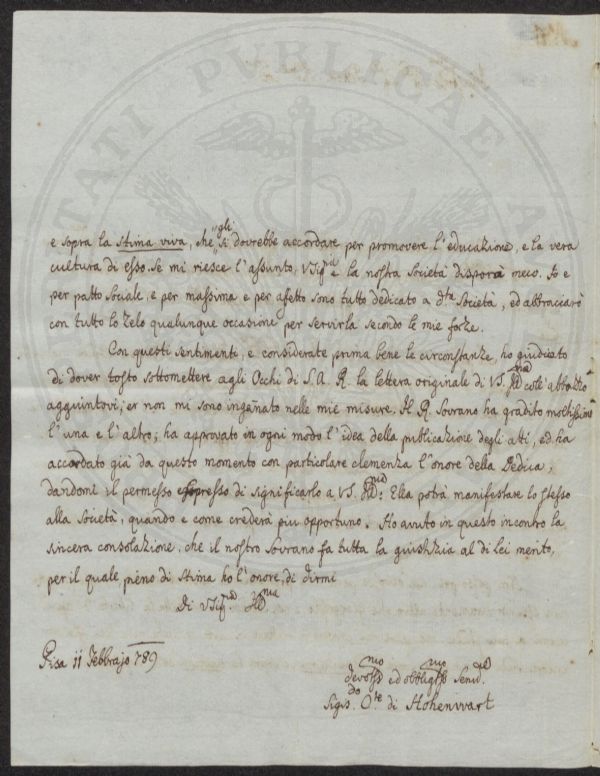 e sopra la stima viva, che gli si dovrebbe accordare per promovere l'educazione, e la vera
cultura di esso. Se mi riesce l'assunto, VSigria e la nostra Società disporà meco. Io e
per patto sociale, e per massima e per affetto sono tutto dedicato a dta Società, ed abbracciarò
con tutto lo Zelo qualunque occasione per servirla secondo le mie forze.
Con questi sentimenti, e considerate prima bene le circonstanze, ho giudicato
di dover tosto sottomettere agli Occhi di S. A. R. la lettera originale di VS. coll' abbozzo
aggiuntovi; er non mi sono ingañato nelle mie misure. Il R. Sovrano ha gradito moltissimo
l'una e l'altro; ha approvato in ogni modo l'idea della publicazione degli atti, ed ha
accordato già da questo momento con particolare clemenza l'onore della Dedica,
dandomi il permesso espresso di significarlo a VS. Ella potrà manifestare lo stesso
alla Società, quando e come crederà più opportuno. Ho avuto in questo incontro la
sincera consolazione, che il nostro Sovrano fa tutta la giustizia al di Lei merito,
per il quale pieno di stima ho l'onore, di dirmi
Di VSig.
Pisa 11 Febbrajo 789
ed
Sigis.do Cte di Hohenwart
PUBLICAE